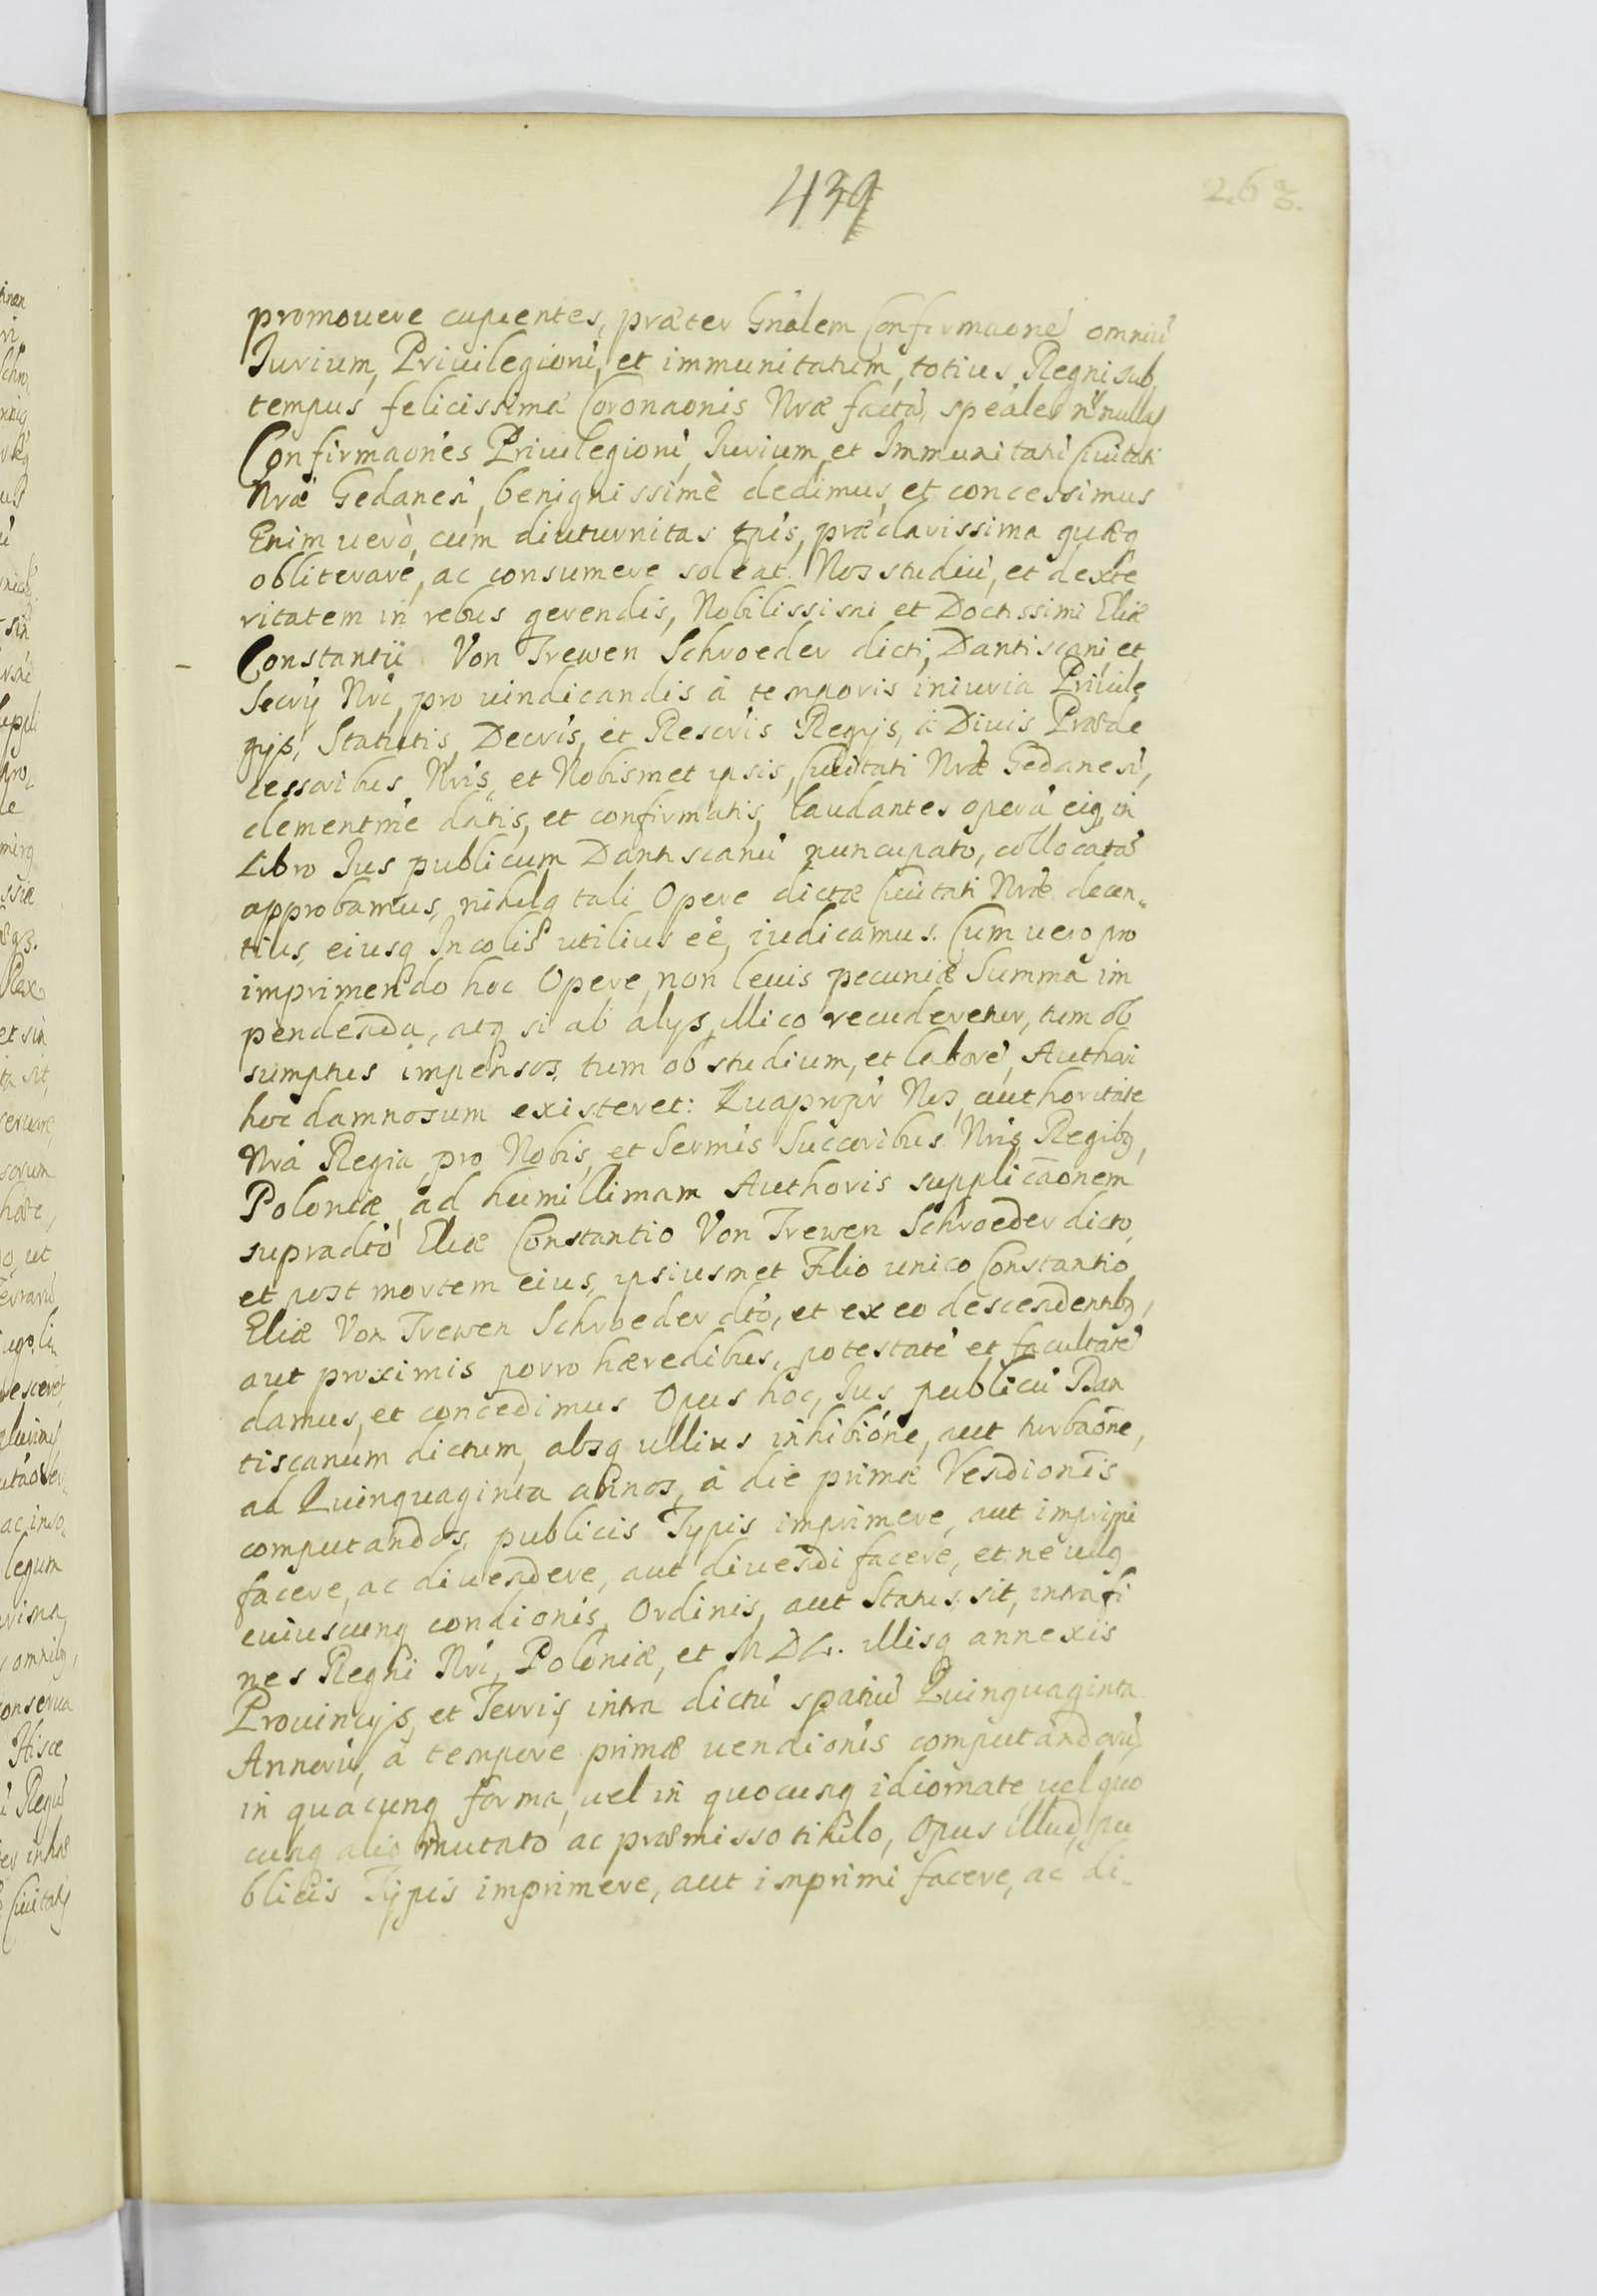 439
263.
promouere cupientes, præter Gnálem Confirmaoné omniũ
Iurium, Priuilegiorũ, et immunitatum, totius Regni sub
tempus felicissimæ Coronaonis Nræ factã, speáles nõ nullas
Confirmaones Priuilegiorũ, Iurium, et Immunitatũ Ciuitati
Nræ Gedanesi, benignissimè dedimus, et concessimus
Enim uerò, cum diuturnitas tpis, præclarissima quæq
obliterare, ac consumere soleat. Nos studiũ, et dexte
ritatem in rebus gerendis, Nobilissimi et Doctissimi Eliæ
- Constantii Von Trewen Schroeder dicti, Dantiscani et
Secrÿ Nri, pro uindicandis à temporis iniuria Priuile
gijs, Statutis, Decris, et Rescris Regijs, à Diuis Præde
cessoribus Nris, et Nobismet ipsis, Ciuitati Nræ Gedanesi,
clementme datis, et confirmatis, laudantes operã eiq, in
Libro Ius publicum Dantiscanũ nuncupato, collocatã
approbamus, nihilq tali Opere dictæ Ciuitati Nræ decen-
tius, eiusq Incolis utilius eé, iudicamus. Cum uero pro
imprimendo hoc Opere, non leuis pecuniæ Summa im
pendenda, atq si ab alijs, illico recuderetur, tum ob
sumptus impensos, tum ob studium, et laborẽ, Authori
hoc damnosum existeret: Quapropr Nos, authoritate
Nrá Regia, pro Nobis, et Sermis Succoribus Nris, Regibq,
Poloniæ, ad humillimam Authoris supplicãonem
supradto Eliæ Constantio Von Trewen Schroeder dicto,
et post mortem eius, ipsiusmet Filio unico Constantio
Eliæ Von Trewen Schroeder dto, et ex eo descendentibq,
aut proximis porro hæredibus, potestatẽ et facultatẽ
damus, et concedimus Opus hoc, Ius publicũ Dan
tiscanum dictum, absq ullius inhibióne, aut turbaõne,
ad Quinquaginta annos, à die primæ Vendionis
computandos, publicis Typis imprimere, aut imprimi
facere, ac diuendere, aut diuendi facere, et ne ullq
cuiuscunq condionis, Ordinis, aut Status, sit, intra fi
nes Regni Nri, Poloniæ, et M D L. illisq annexis
Prouincijs, et Terris, intra dictũ spatiũ Quinquaginta
Annorũ, à tempore primæ uendionis computandorũ,
in quacunq forma, uel in quocunq idiomate, uel quo
cunq alio mutato ac præmisso titulo, Opus illud, pu
blicis Typis imprimere, aut imprimi facere, ac di-